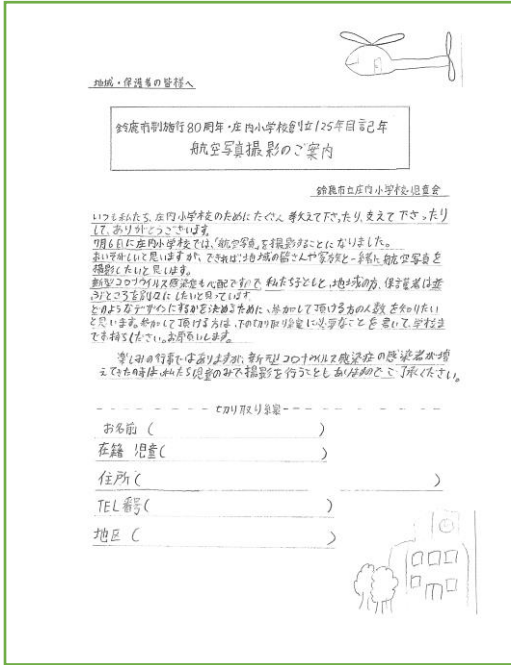 地域・保護者の皆様へ
鈴鹿市制施行80周年・庄内小学校創立125年目記年
航空写真撮影のご案内
鈴鹿市立庄内小学校・児童会
いつも私たち、庄内小学校のためにたくさん考えて下さったり、支えて下さったり
して、ありがとうございます。
7月6日に庄内小学校では、「航空写真」を撮影することになりました。
お忙しいと思いますが、できれば、地域の皆さんや家族と一緒に航空写真を
撮影したいと思います。
新型コロナウイルス感染症も心配ですので、私たち子どもと、地域の方、保護者は並
ぶところを別々にしたいと思っています。
どのようなデザインにするかを決めるために、参加して頂ける方の人数を知りたい
と思います。参加して頂ける方は、下の切り取り線に必要なことを書いて、学校ま
でお持ちください。お願いします。
楽しみの行事ではありますが、新型コロナウイルス感染症の感染者が増
えてきた時は、私たち児童のみで撮影を行うこともありますので、ご了承ください。
切り取り線
お名前 ( )
在籍 児童( )
住所( )
TEL番号( )
地区( )